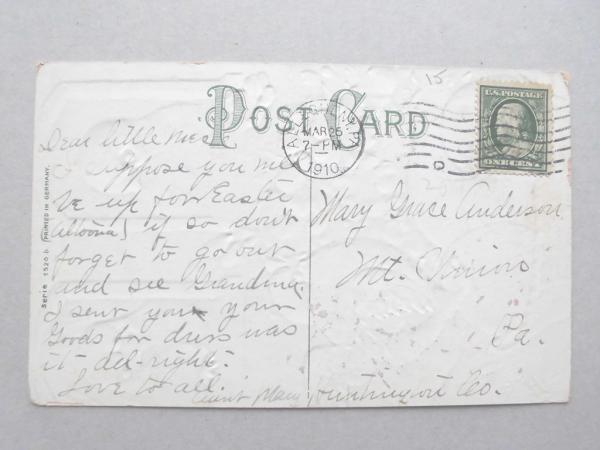 POST CARD
15
MAR 25
7-PM
1910
U.S. POSTAGE
ONE CENT
D
Dear little
suppose you
be up for Easter
(Altoona) if so don't
forget to go out
and see Grandma.
I sent you your
Goods for dress was
it all-right.
Love to all.
Aunt Mary
Mary Grace Anderson
Mt. Union
Pa.
Huntingdon Co.
Serie 1520 b (PRINTED IN GERMANY.